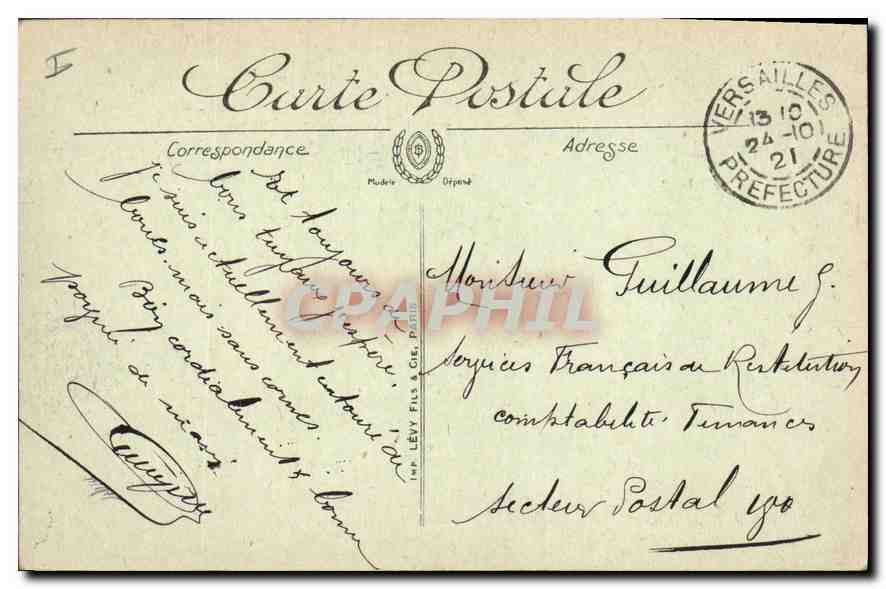 Carte Postale
Correspondance
Adresse
Modèle Déposé
VERSAILLES
13 10
24-10
21
PREFECTURE
Est toujours de
bons tuyaux j'espère.
je suis actuellement entouré de
boues. mais sans cornes...
Bien cordialement & bonne
poignée de main
Monsieur Guillaume G.
Services Français de Restitution
comptabilité. Finances
Secteur Postal 190
IMP. LÉVY FILS & CIE, PARIS
CPAPHIL